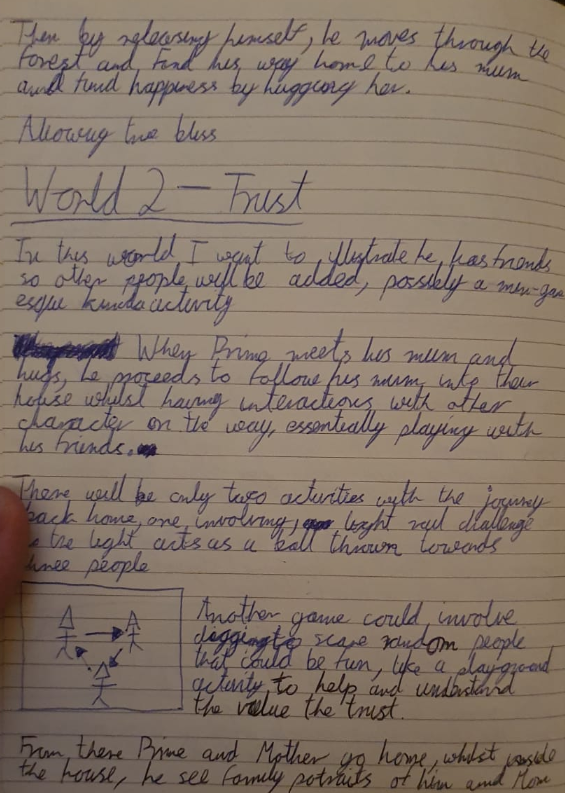 Then by releasing himself, he moves through the
forest and find his way home to his mum
and find happiness by hugging her.
Allowing the bliss
World 2 — Trust
In this world I want to illustrate he has friends
so other people will be added, possibly a mini-gam
esque kinda activity
When Prime meets his mum and
hugs, he proceeds to follow his mum into their
house whilst having interactions with other
character on the way, essentially playing with
his friends.
There will be only two activities with the journey
back home, one involving light challenge
the light acts as a ball thrown towards
three people
Another game could involve
digging to scare random people
that could be fun, like a playground
activity to help and understand
the value the trust.
From there Prime and Mother go home, whilst inside
the house, he see family potraits of him and Mom